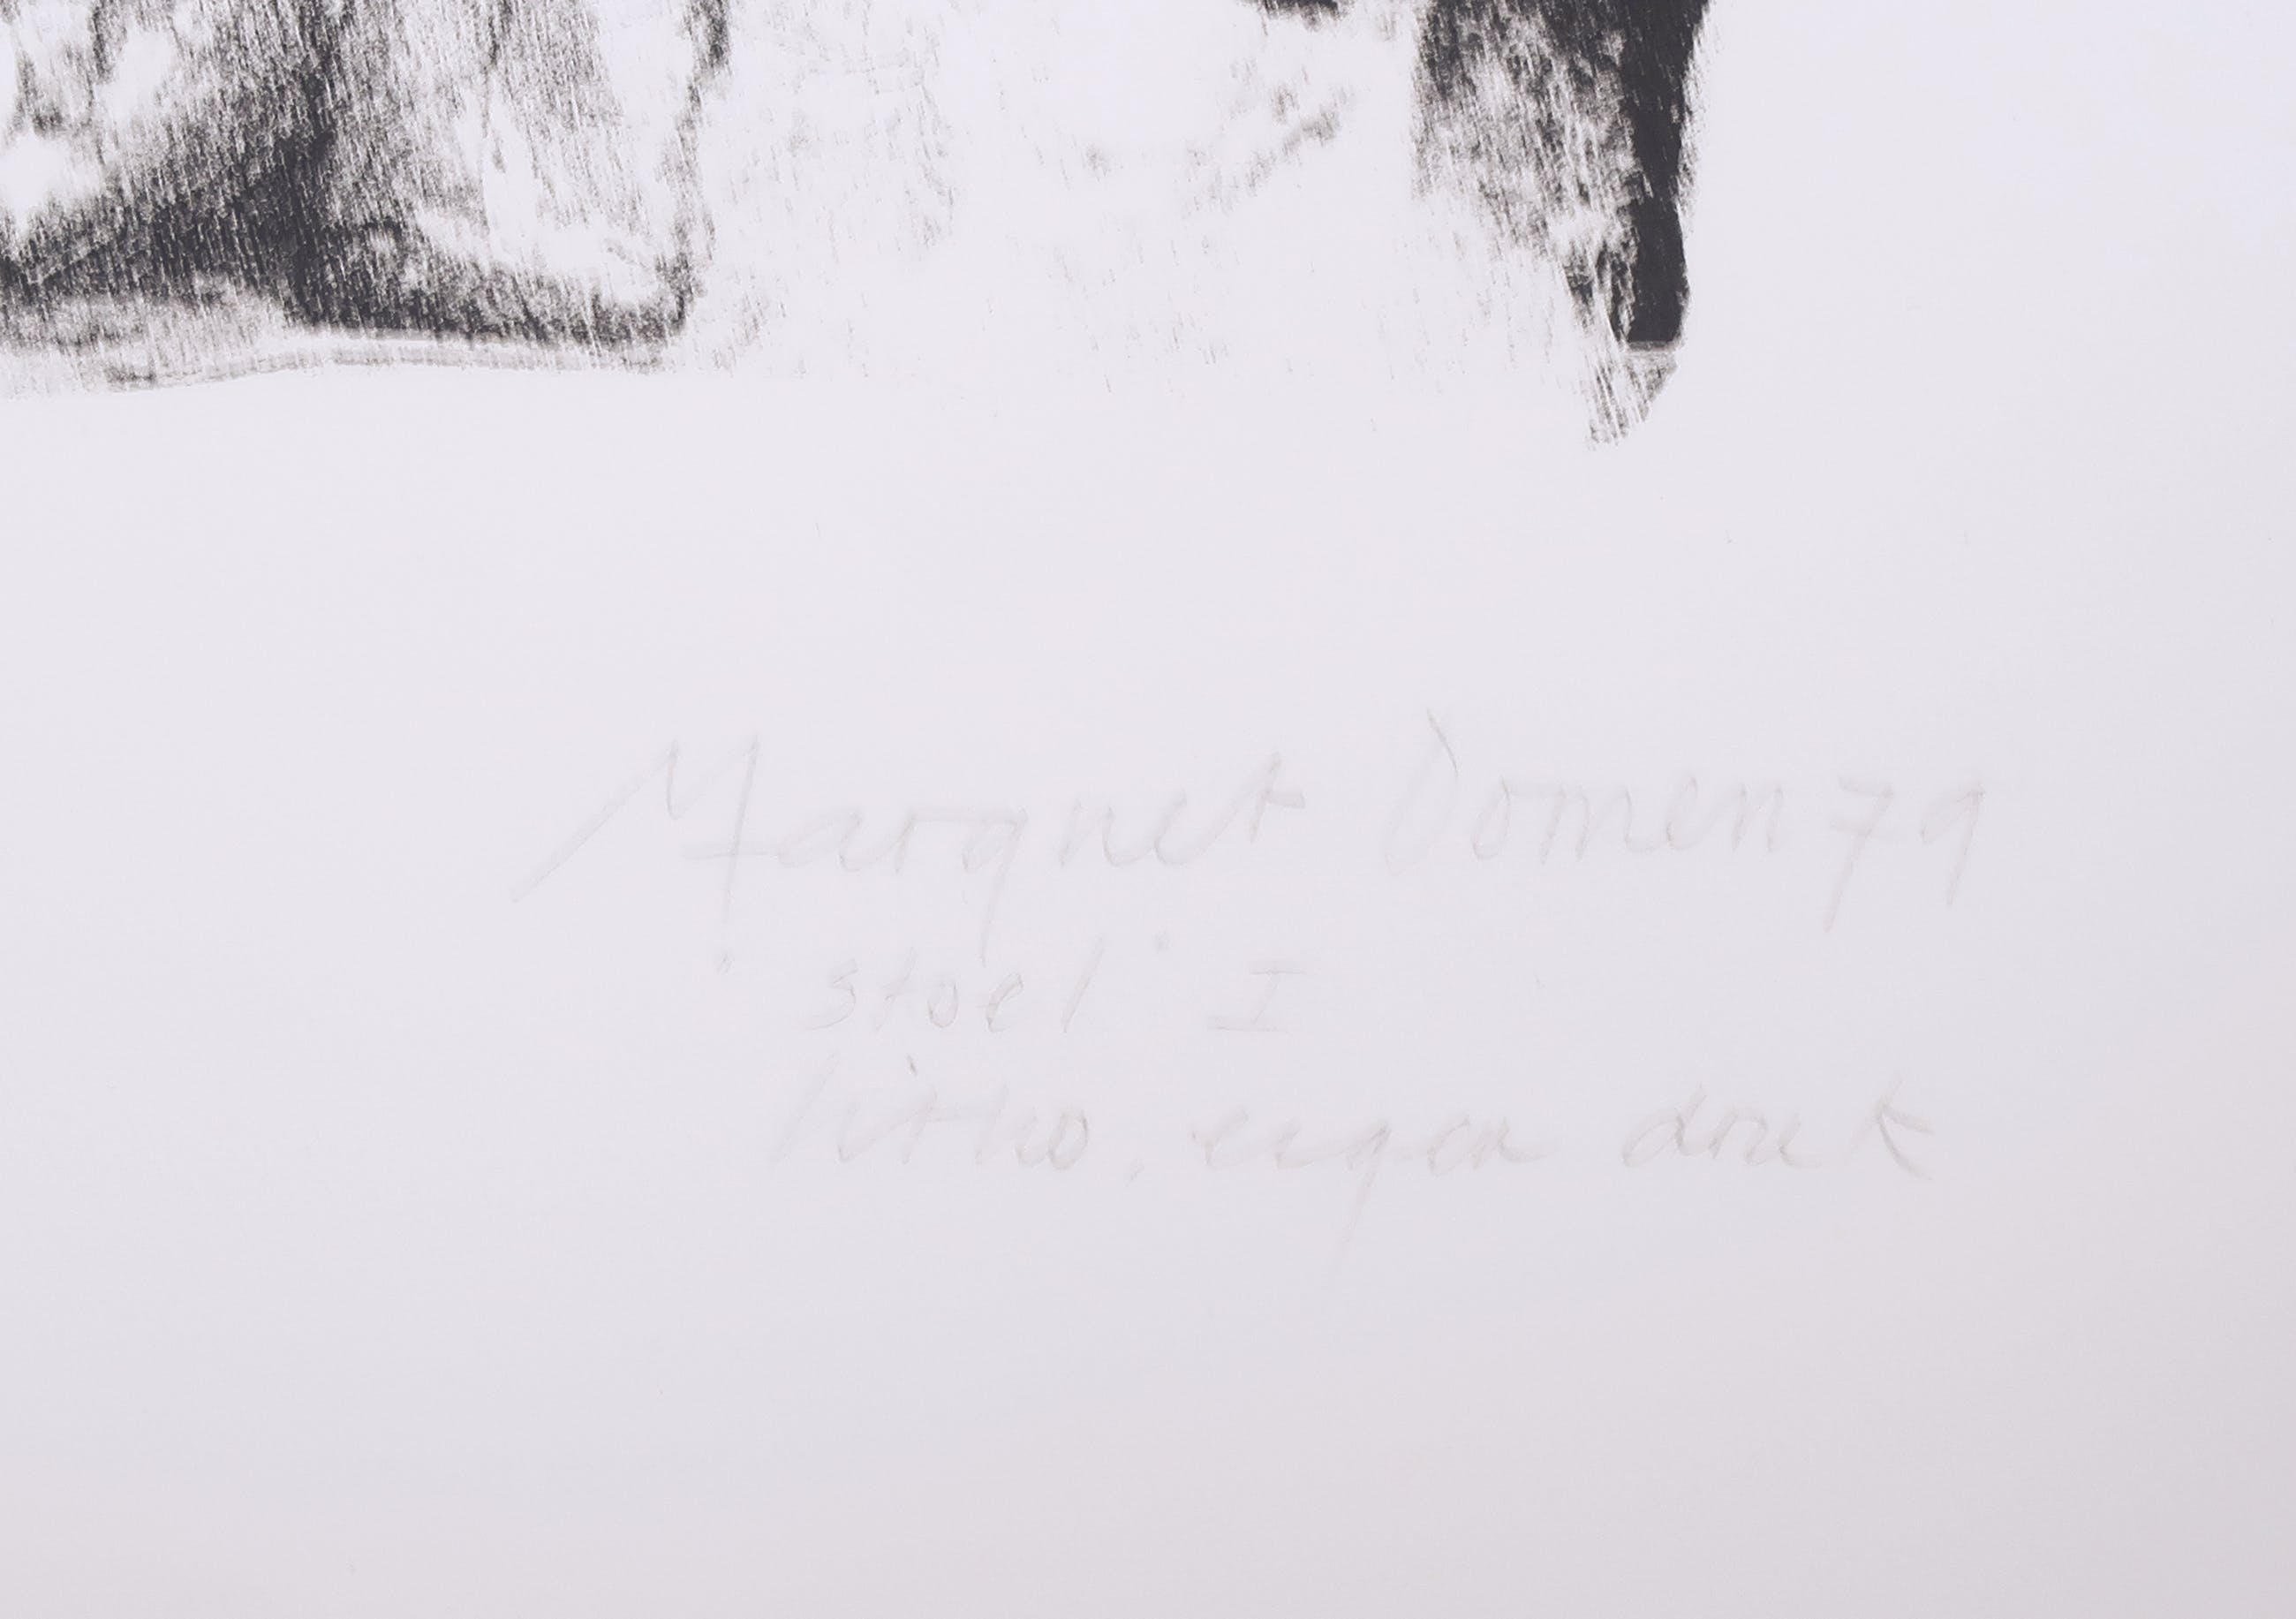 Margriet Domen 79
stoel I
litho. eigen druk